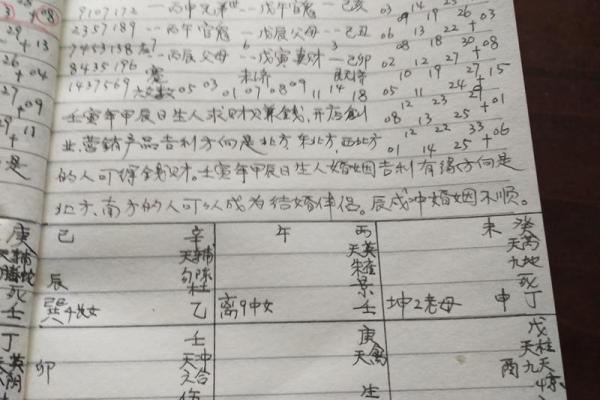 9107172 一丙申兄弟世 一戊午官鬼 一己亥 03 09 14 19 26 +03
2357189 一丙午官鬼 一戊辰父母 一己丑 06 13 22 +09
7453138 一丙辰父母 一戊寅妻财 一己卯 08 18 30 +08
8435196 蹇 未济 既济 02 12 27 +07
1437569 六爻数 05 03 01 07 08 09 11 14 18 10 19 27 +15
壬寅年甲辰日生人求财求算钱,开店创
业,营销产品吉利方向是北方东北方,西北方
的人可得钱财。壬寅年甲辰日生人婚姻吉利有缘方向是
北方、南方的人可以成为结婚伴侣。辰戌冲婚姻不顺。
05 11 24 29
08 12 23 25 +01
12 22 33 +06
01 14 25
08
29 +13
26 +04
27 +09
29 +11
是
庚 巳 辛 午 丙 未 癸
天辅 天英 天芮
螣蛇 勾陈 朱雀 九地
死 辰 杜 景 死
壬 巽4长女 乙 离9中女 壬 坤2老母 申 丁
丁 壬 庚 戊
天英 天冲 天禽 天柱
卯 六合 酉 九天
伤 生